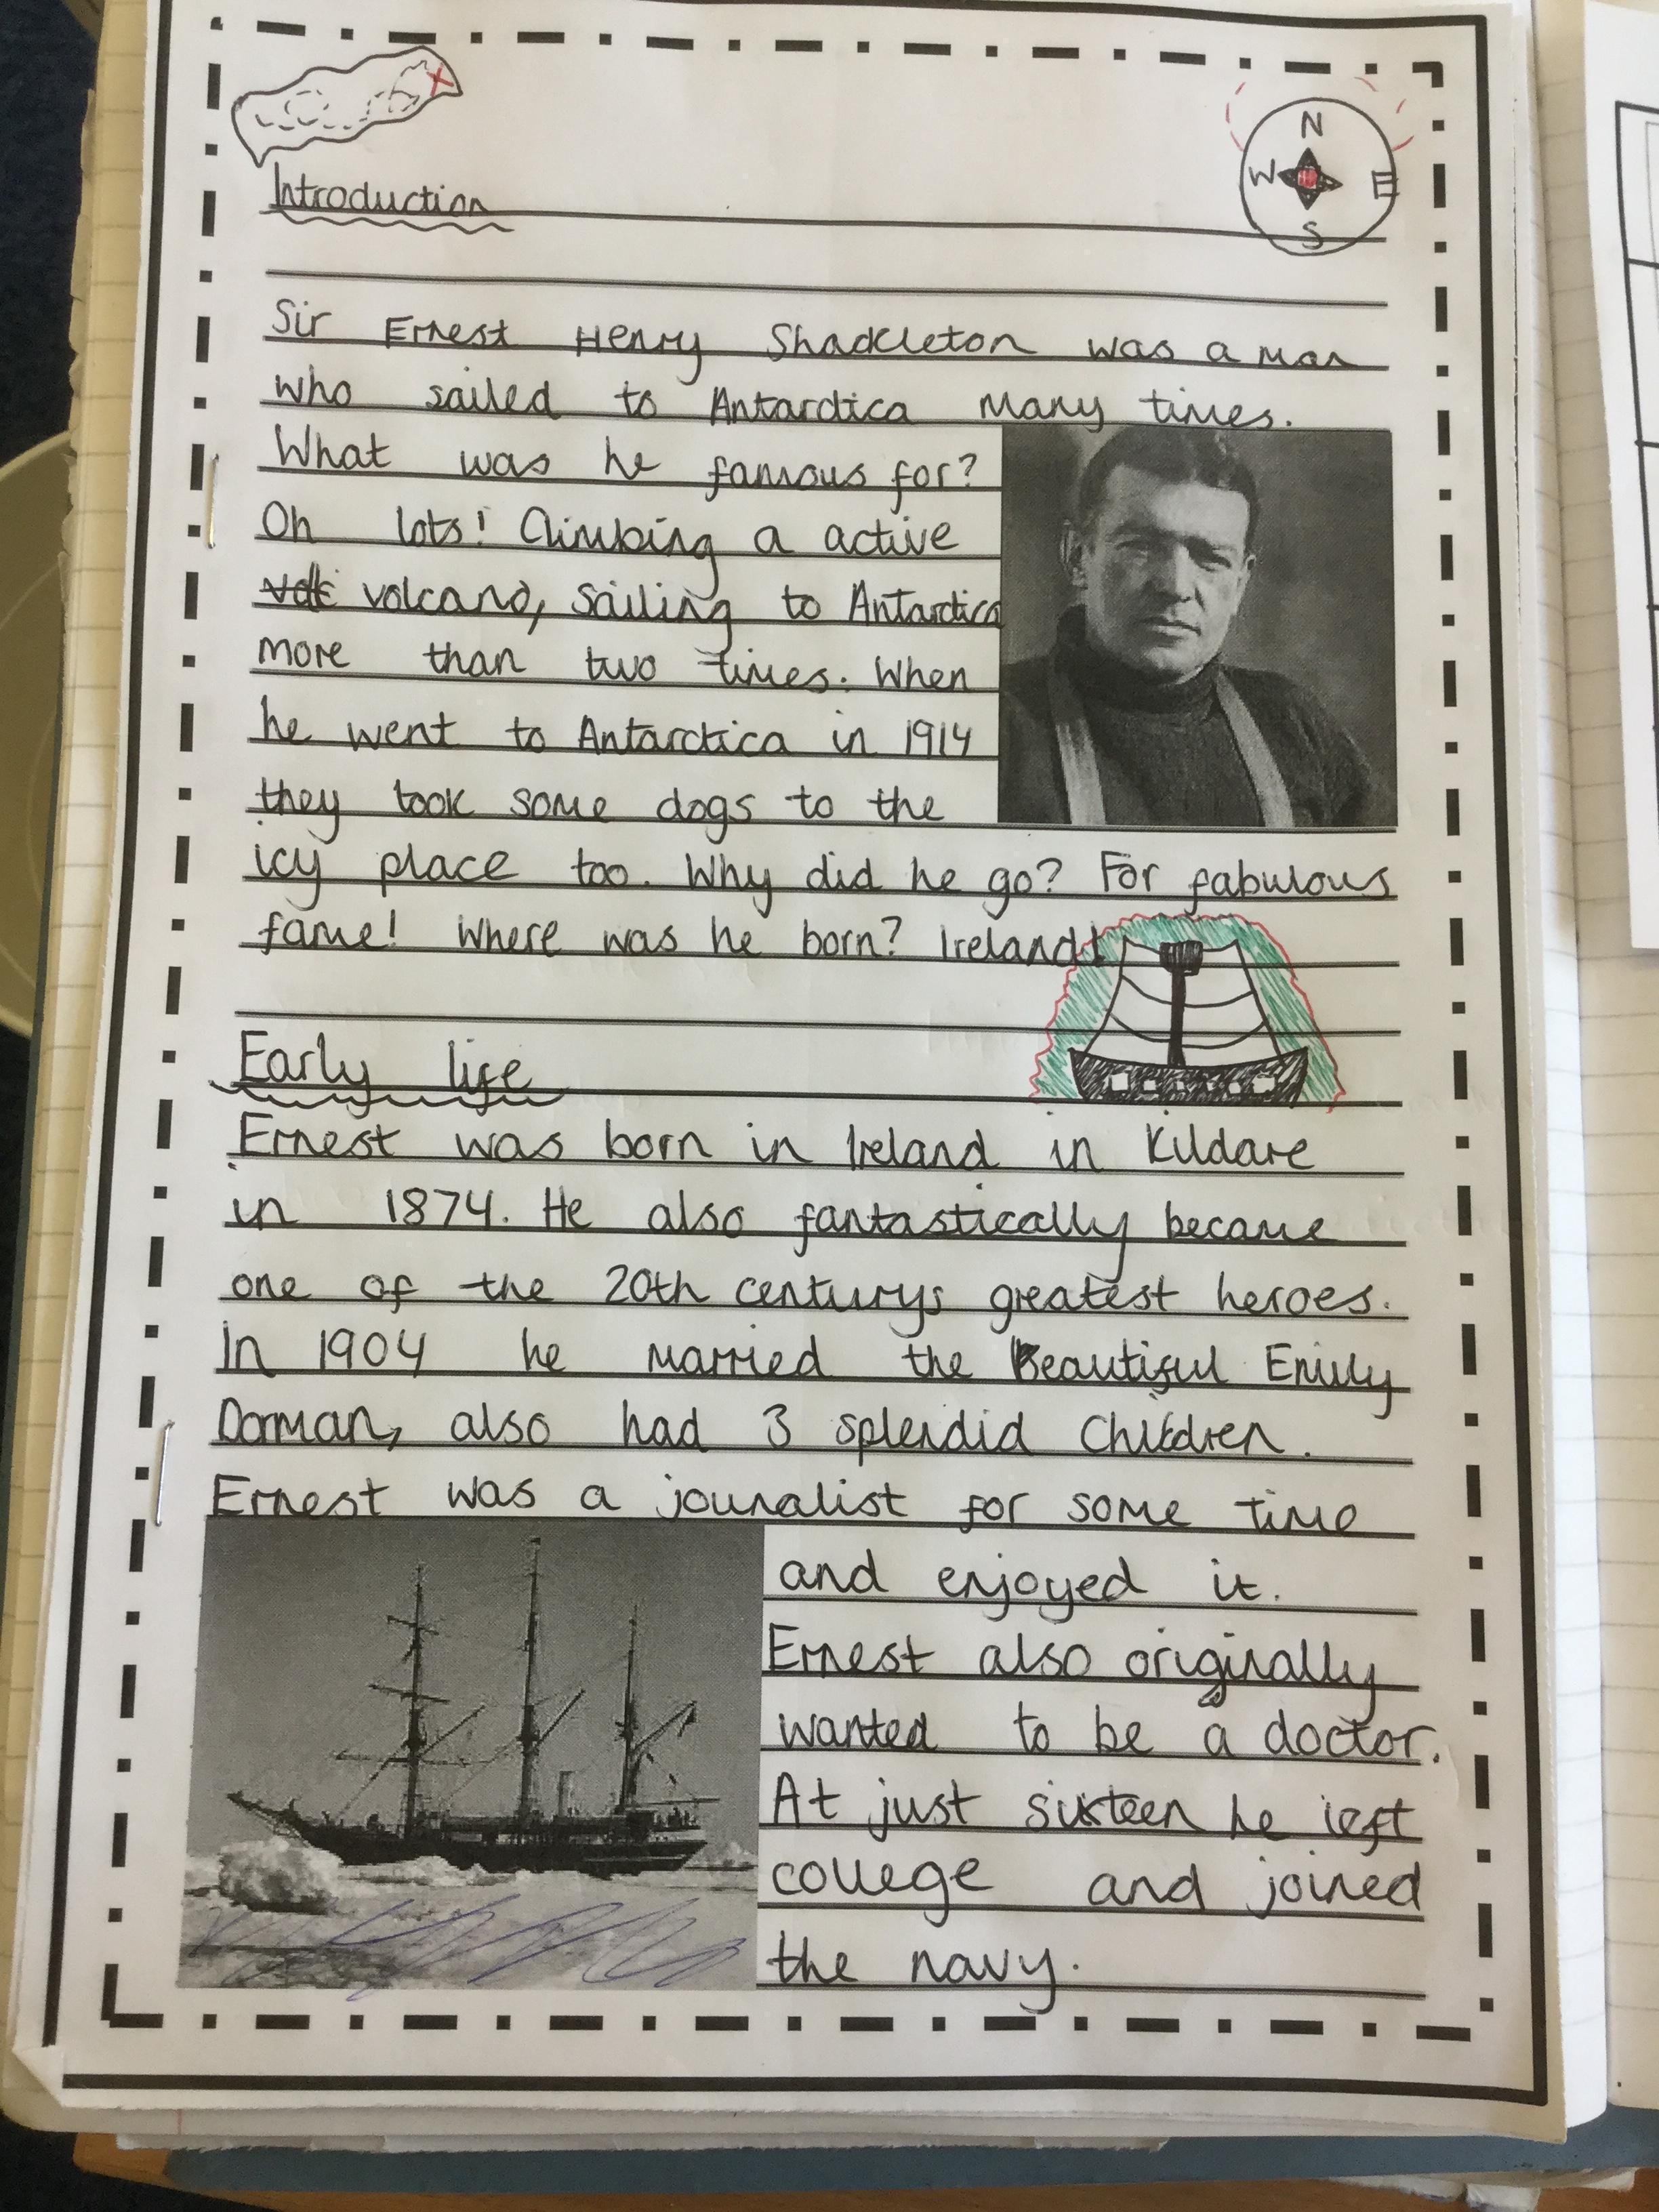 N
W E
S
Introduction
Sir Ernest Henry Shackleton was a man
who sailed to Antarctica many times.
What was he famous for?
Oh lots! Climbing a active
volcano, sailing to Antarctica
more than two times. When
he went to Antarctica in 1914
they took some dogs to the
icy place too. Why did he go? For fabulous
fame! Where was he born? Ireland!
Early life
Ernest was born in Ireland in Kildare
in 1874. He also fantastically became
one of the 20th centurys greatest heroes.
In 1904 he married the Beautiful Emily
Dorman, also had 3 splendid Children.
Ernest was a jounalist for some time
and enjoyed it.
Ernest also originally
wanted to be a doctor.
At just sixteen he left
college and joined
the navy.